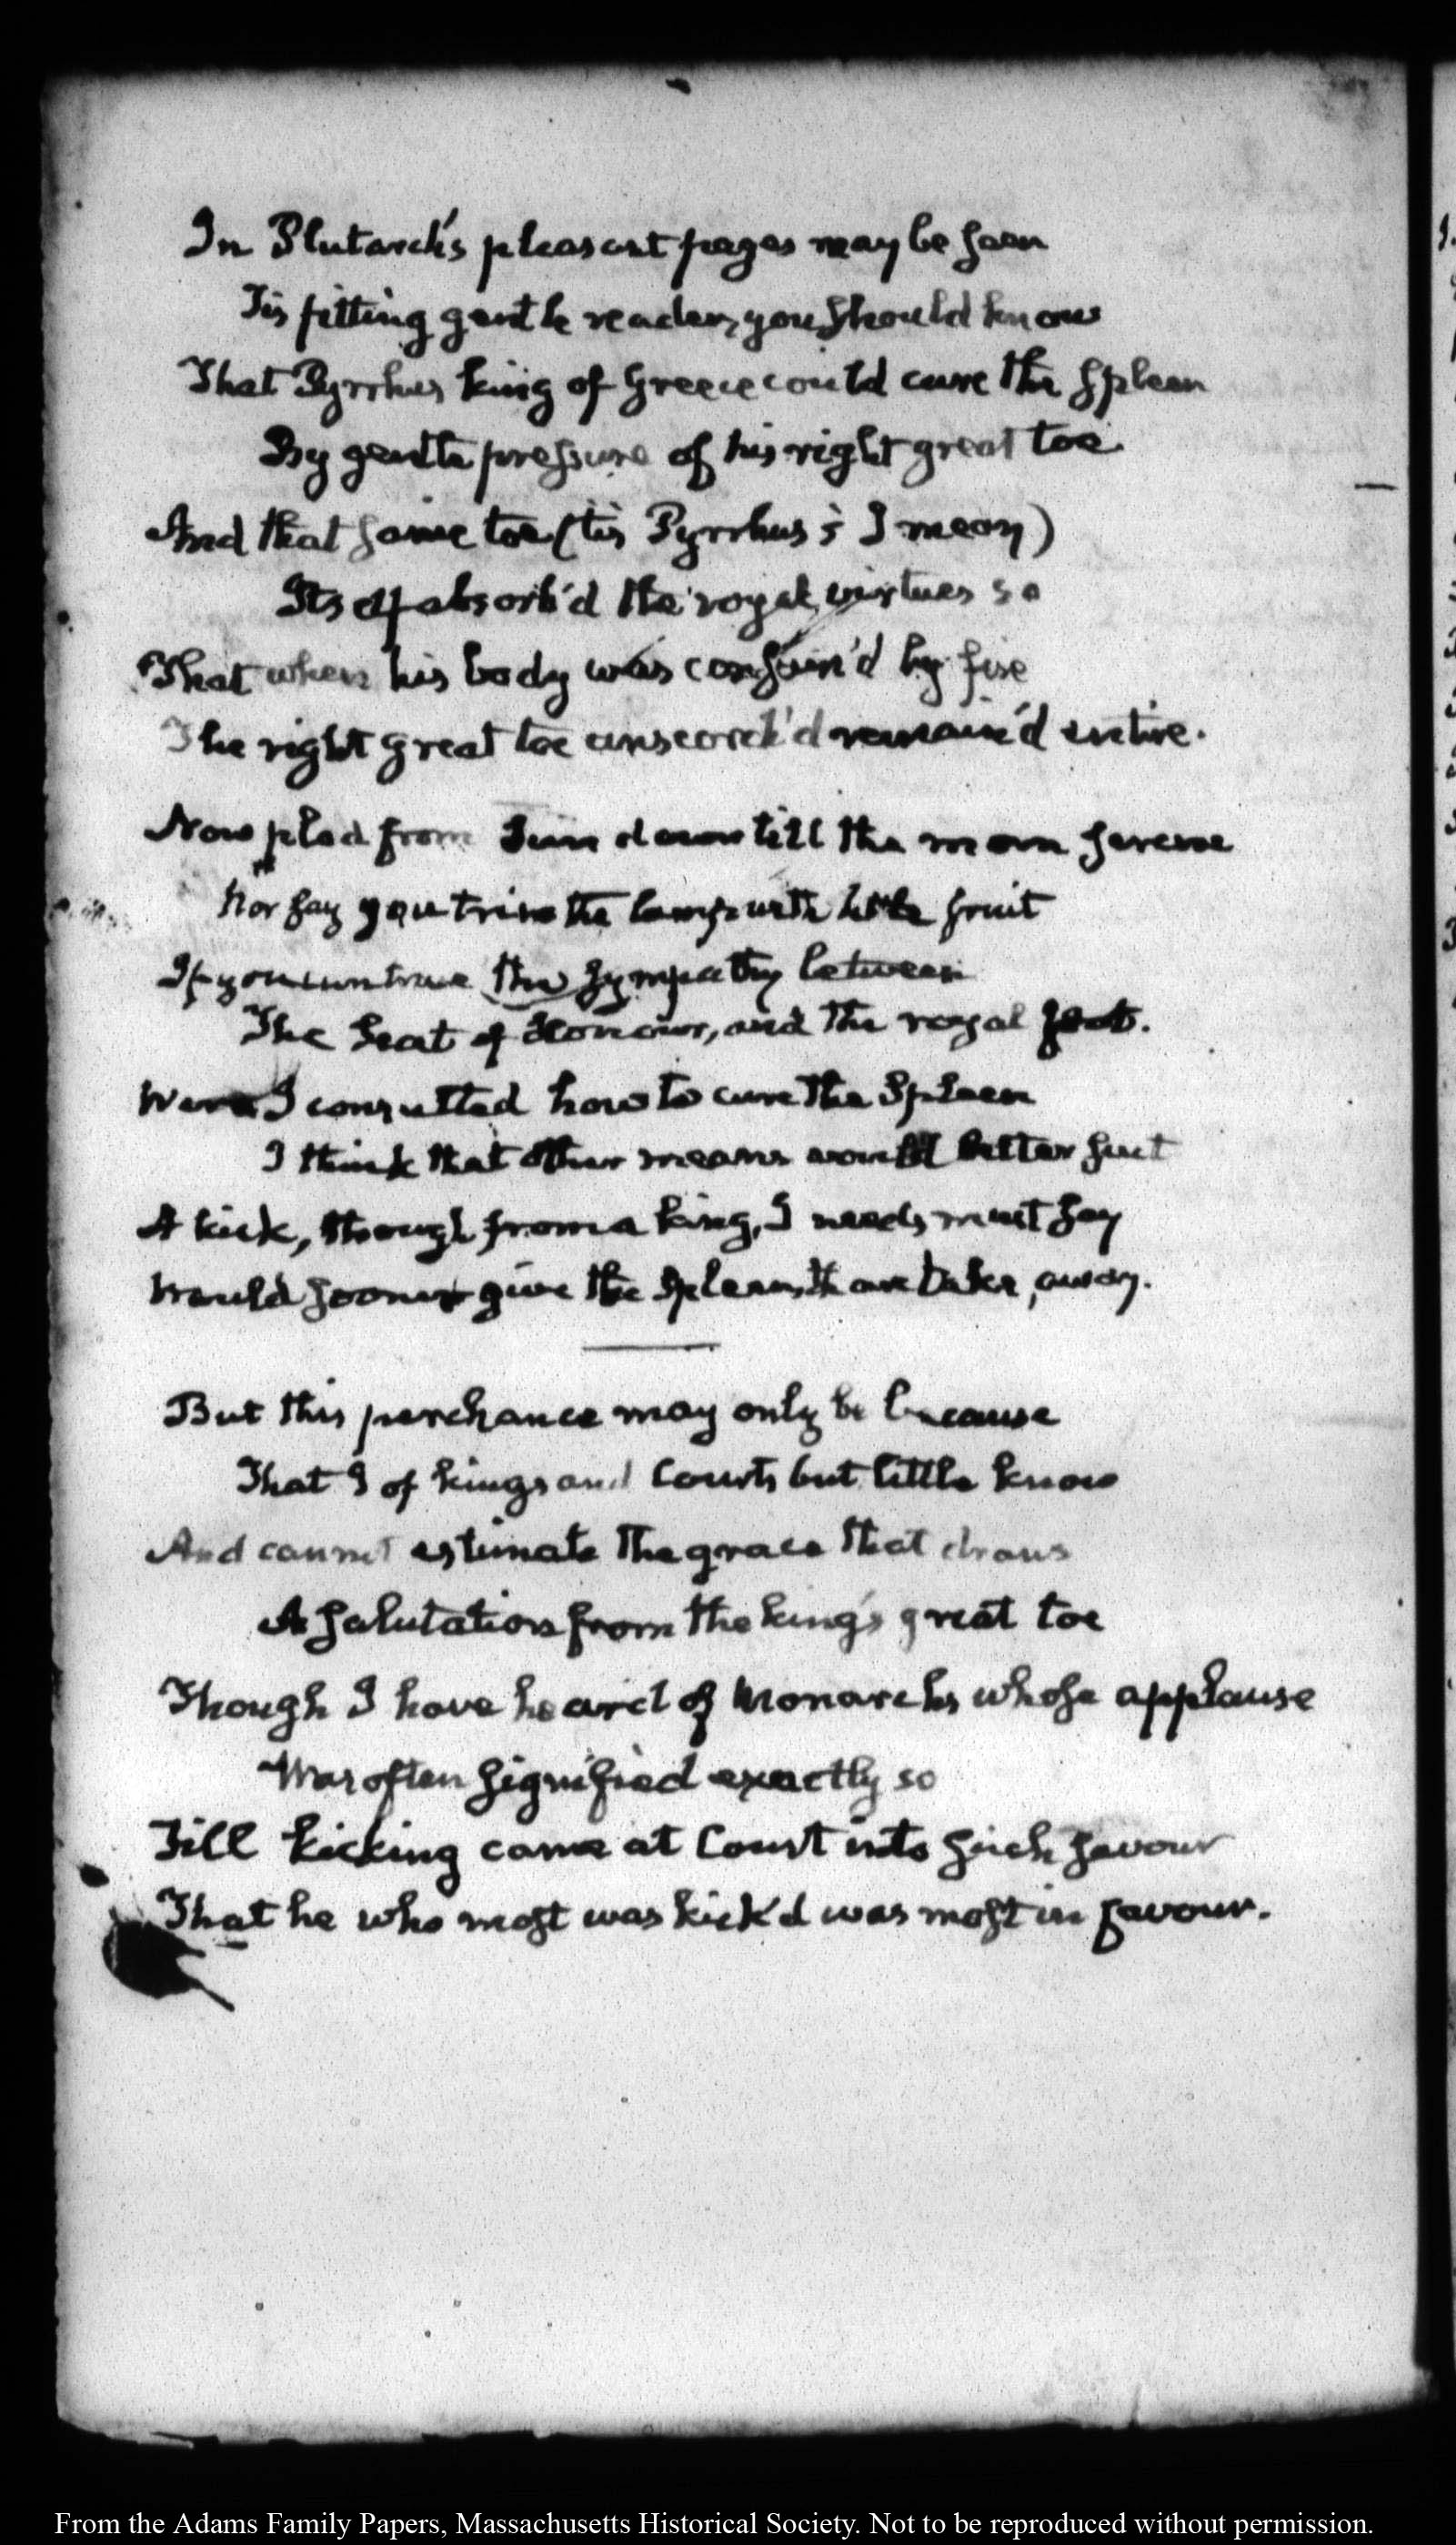 In Plutarch's pleasant pages may be seen
Tis fitting gentle reader, you should know
That Pyrrhus king of Greece could cure the spleen
By gentle pressure of his right great toe.
And that same toe (tis Pyrrhus's I mean)
Itself absorb'd the royal virtues so
That when his body was by fire
The right great toe unscorch'd remain'd entire.
Now plod from down till the morn serene
Nor say you trim the lamp with little fruit
If you can trace the sympathy between
The Seat of Honour, and the royal foot.
Were I consulted how to cure the Spleen
I think that other means would better suit
A kick, though from a king, I needs must say
Would sooner give the Spleen, than take, away.
But this perchance may only be because
That I of kings and Courts but little know
And cannot estimate the grace that draws
A salutation from the king's great toe
Though I have heard of Monarchs whose applause
Was often signified exactly so
Till kicking came at Court into such favour
That he who most was kick'd was most in favour.
From the Adams Family Papers, Massachusetts Historical Society. Not to be reproduced without permission.